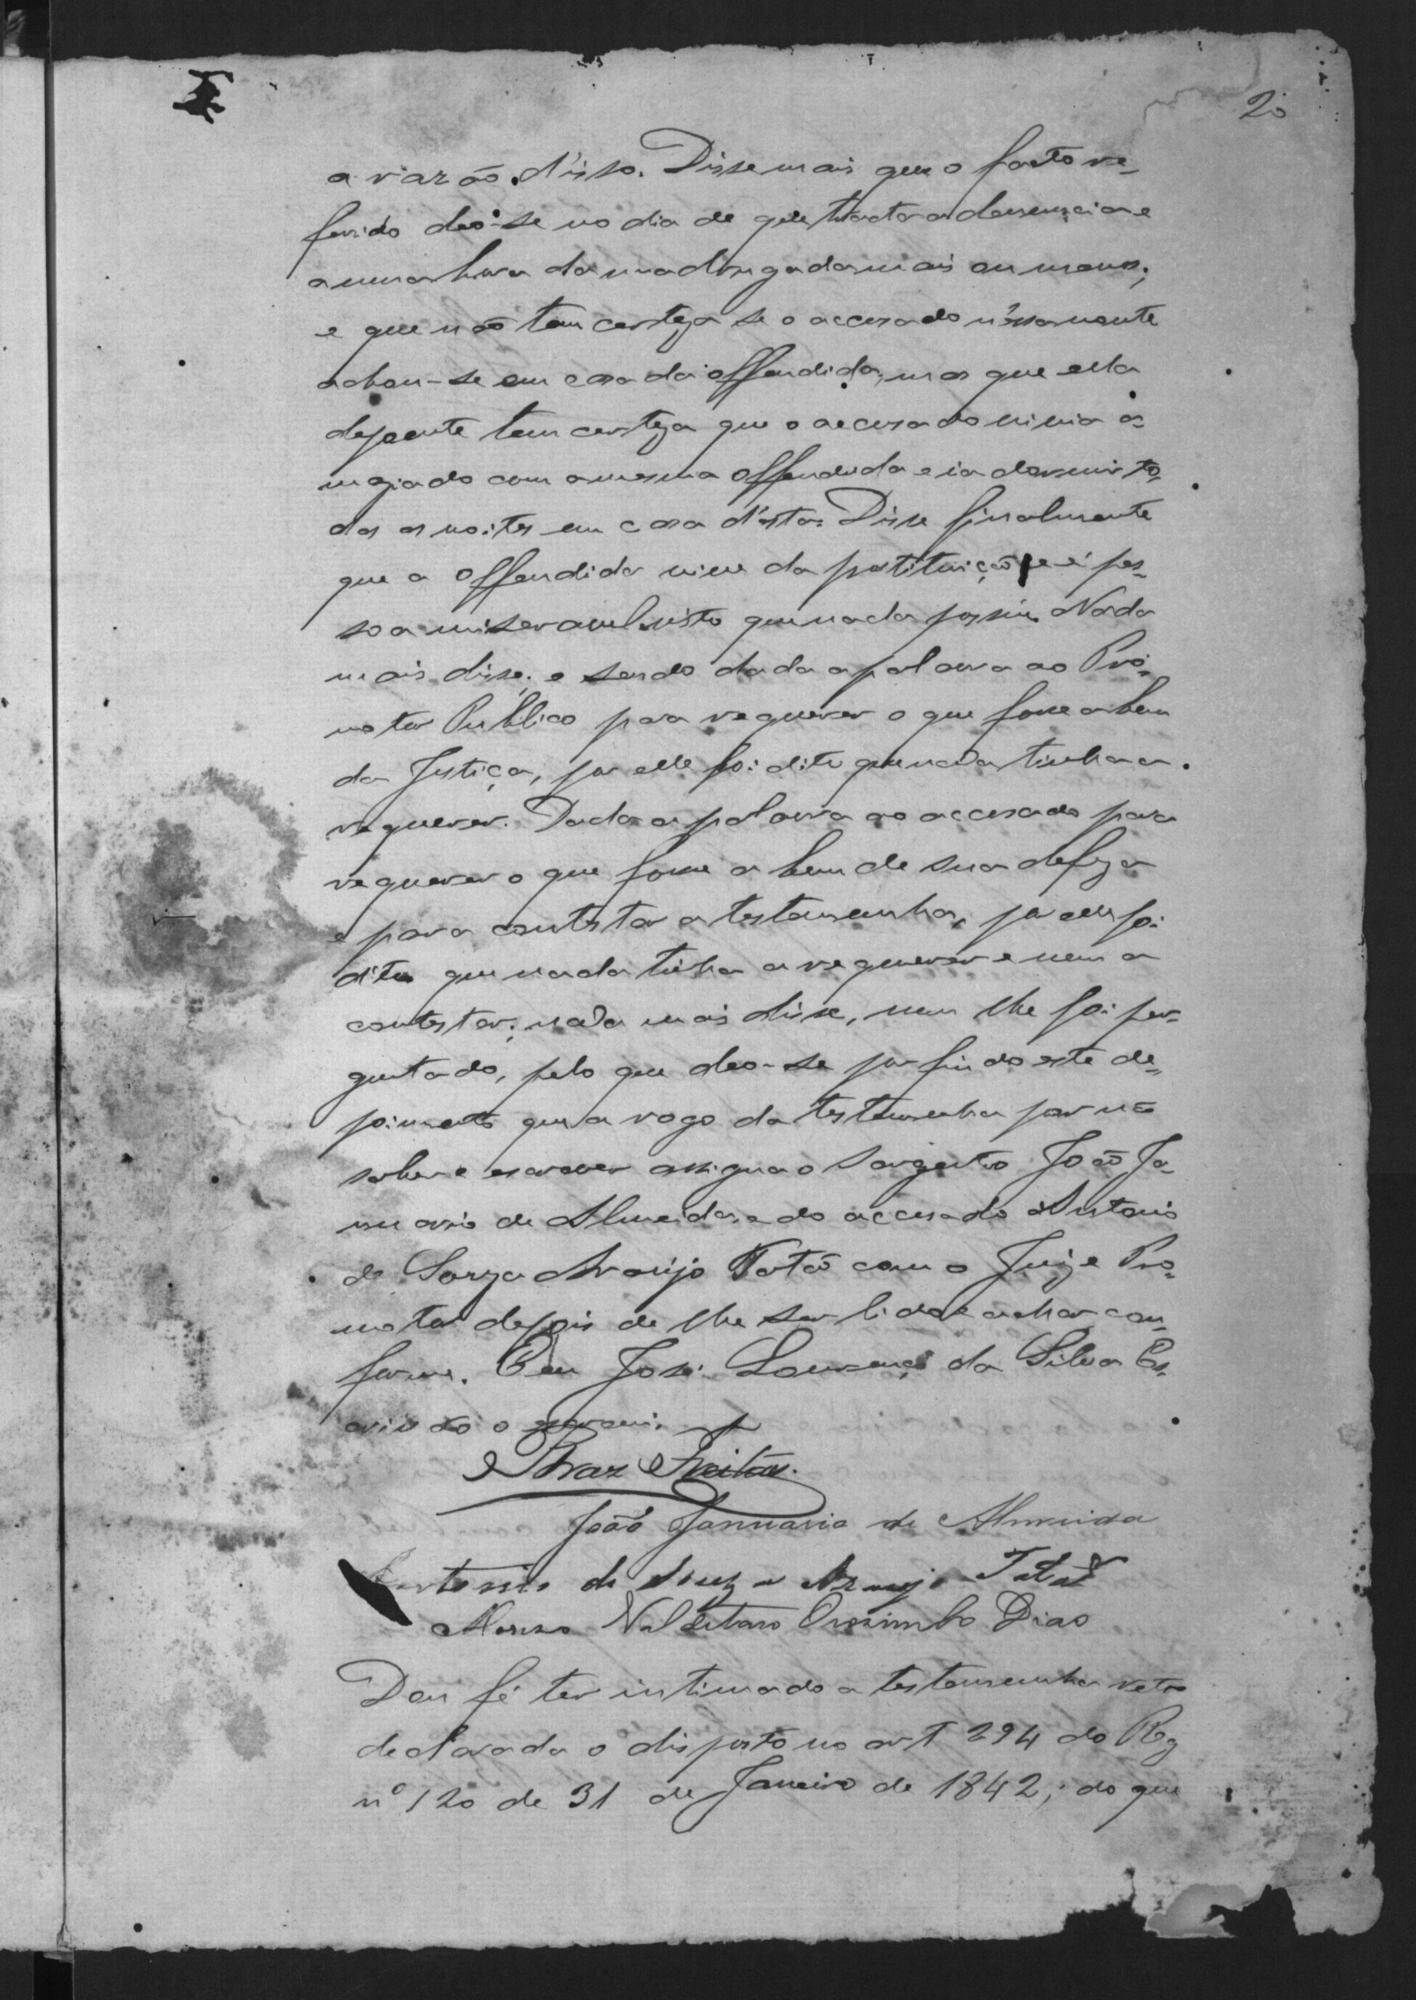 20
a razão d'isso. Disse mais que o facto re-
ferido deo-se no dia de que tracta a denuncia e
a uma hora da madrugada mais ou menos;
e que não tem certeza se o accusado n'essa noute
achou-se em casa da offendida, mas que ella
depoente tem certeza que o accusado vivia a-
maziado com a mesma offendida e ia dormir to-
das as noites em casa d'esta. Disse finalmente
que a offendida vive da prostituição e é pes-
soa miseravel visto que nada possue. Nada
mais disse; e sendo dada a palavra ao Pro-
motor Publico para requerer o que fosse a bem
da Justiça, por elle foi dito que nada tinha a
requerer. Dada a palavra ao accusado para
requerer o que fosse a bem de sua defeza
e para contestar a testemunha, por elle foi
dito que nada tinha a requerer e nem a
contestar; nada mais disse, nem lhe foi per-
guntado, pelo que deo-se por findo este de-
poimento que a rogo da testemunha por não
saber escrever assigna o Sargento João Ja-
nuario de Almeida, e do accusado Antonio
de Souza Araújo Tatá com o Juiz e Pro-
motor depois de lhe ser lido e achar con-
forme. Eu José Lourenço da Silva Es-
crivão o escrevi.
Braz Freitas.
João Januario de Almeida
Antonio de Souza Araujo Tatá
Valdetaro Orosimbo Dias
Dou fé ter intimado a testemunha retro
declarada o disposto no art 294 do Reg
nº 120 de 31 de Janeiro de 1842; do que